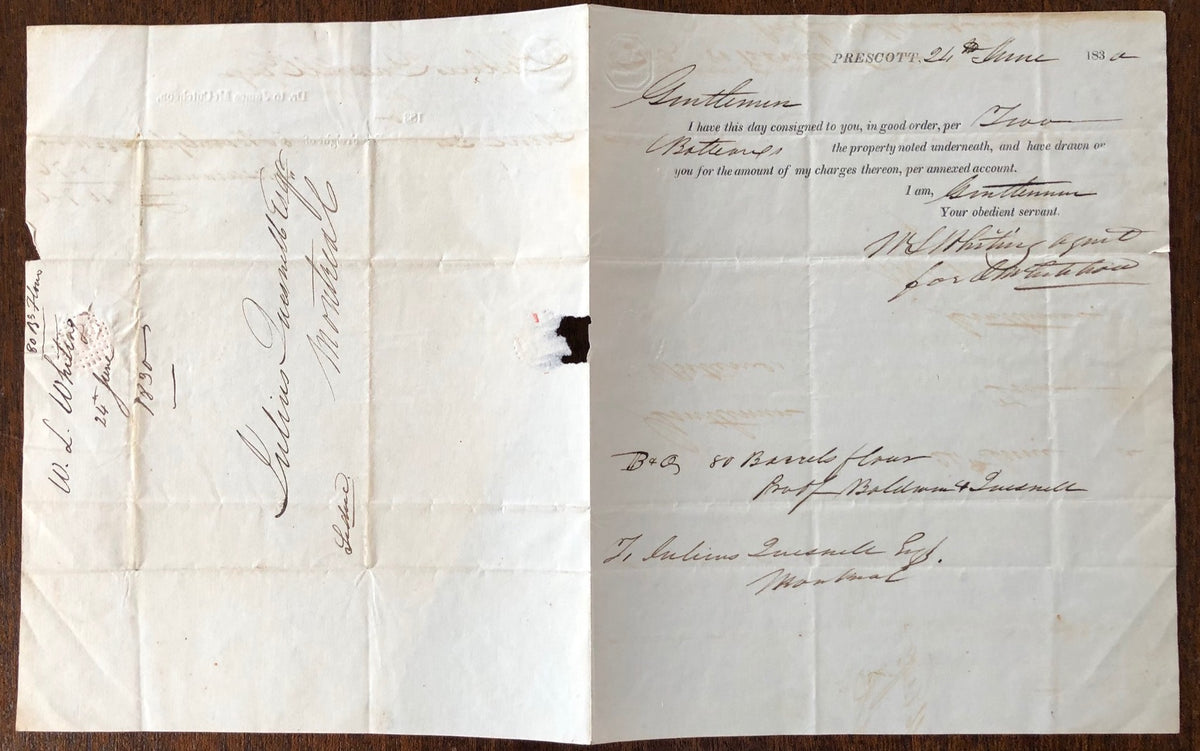 80 Bls Flour
W. L. Whiting
24 June
1830
Julius Quesnell Esqr.
Montreal
PRESCOTT, 24th June 1830
Gentlemen
I have this day consigned to you, in good order, per Two
Batteaues the property noted underneath, and have drawn on
you for the amount of my charges thereon, per annexed account.
I am, Gentlemen
Your obedient servant.
W L Whiting agent
for
B & Q 80 Barrels flour
Baldwin & Quesnell
To Julius Quesnell Esqr.
Montreal
Dr. to James M'Cutcheon,
183